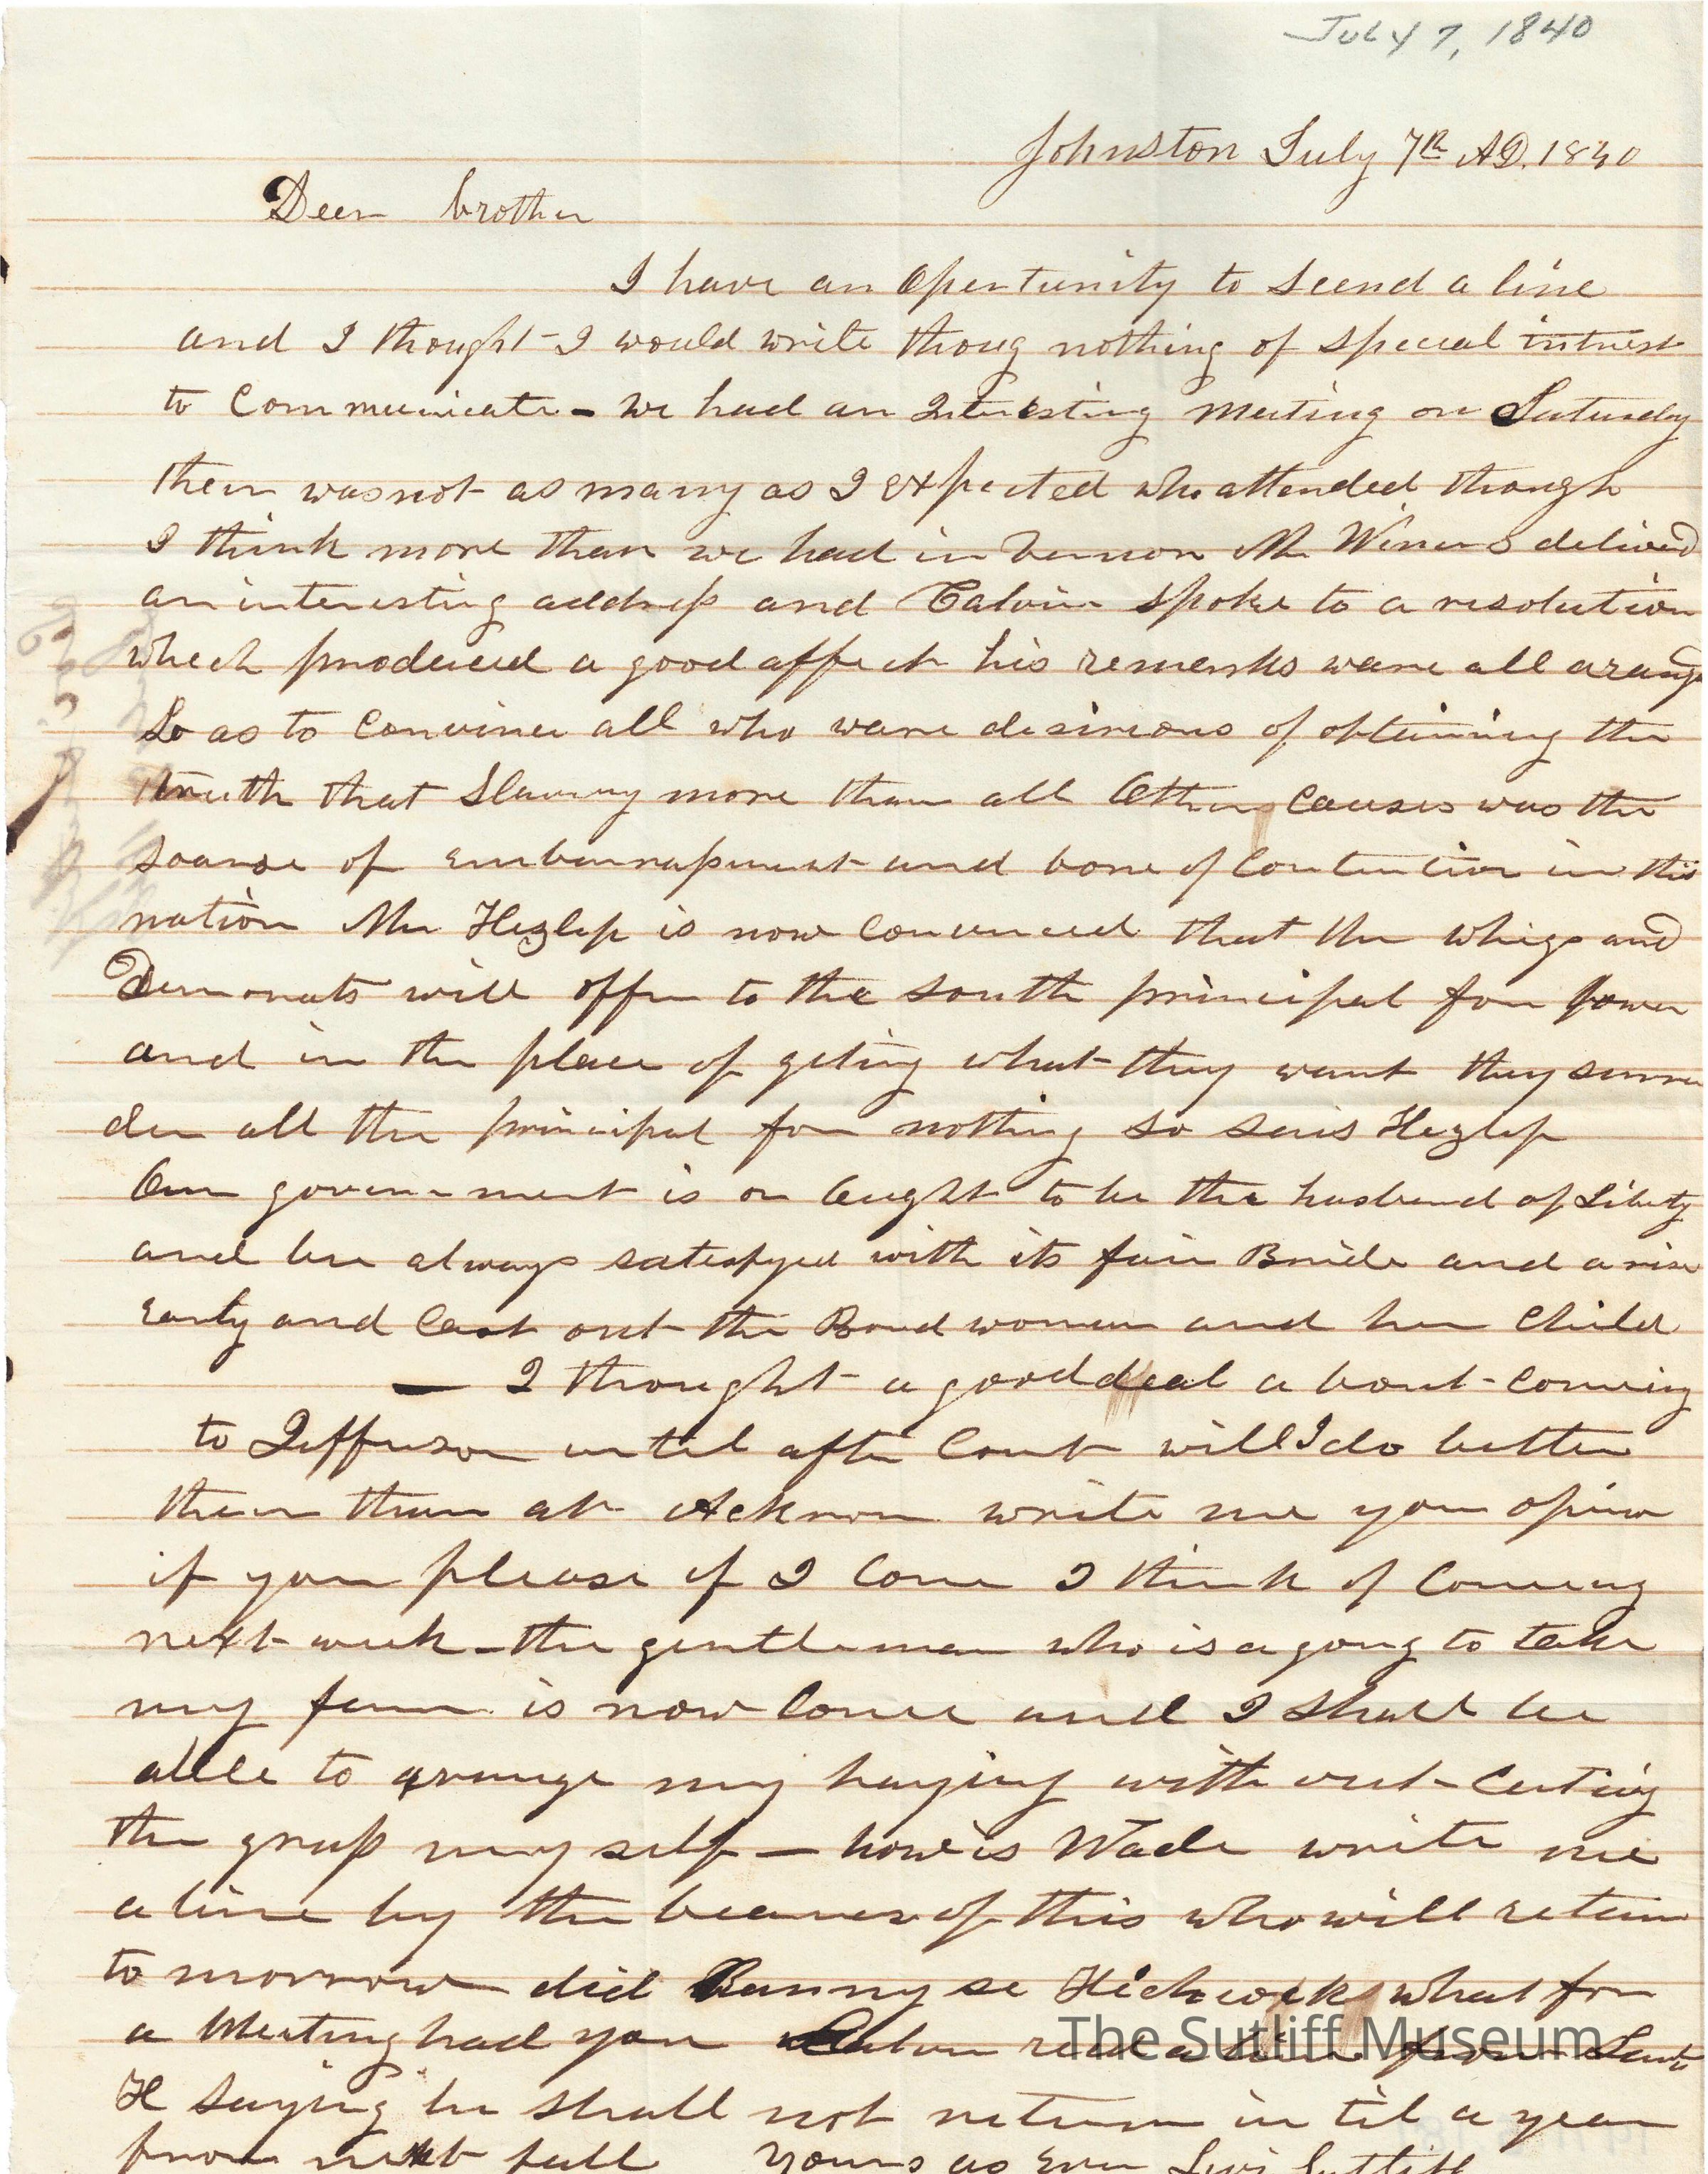 July 7, 1840
Johnston July 7th AD. 1840
Deer brother
I have an Opertunity to seend a line
and I thought I would write thoug nothing of special intrest
to Communicate - we had an Interesting meeting on Saturday
their was not as many as I expected who attended though
I think more than we had in Vernon Mr Winens deliverd
an interesting address and Calvin spoke to a resolution
which produced a good affect his remerks ware all arang
So as to Convince all who ware desireous of obtaining the
truth that Slavery more than all Others Causes was the
soarse of embarrassment and bone of Contention in this
nation Mr Hezlep is now Convinced that the whigs and
Democrats will offer to the south principal for power
and in the place of geting what they want they surren
der all the principal for nothing so seis Hezlep
Our government is or Ought to be the husband of Liberty
and be always satesfyed with its fair Bride and arise
early and Cast out the Bond woman and her Child
— I thought a good deal a bout coming
to Jefferson until after Court will I do better
their than at Ackron write me your opinion
if you please if I Come I think of Comeing
next week - the gentleman who is a gong to take
my farm is now Come and I shall be
able to arange my haying with out Cuting
the grass my self — how is Wade write me
a line by the bearer of this who will return
to morrow did Ranny se Hichcock what for
a Meeting had you Calvin read a line from
The Sutliff Museum
H saying he shall not return in til a year
from next fall yours as Ever Levi Sutliff